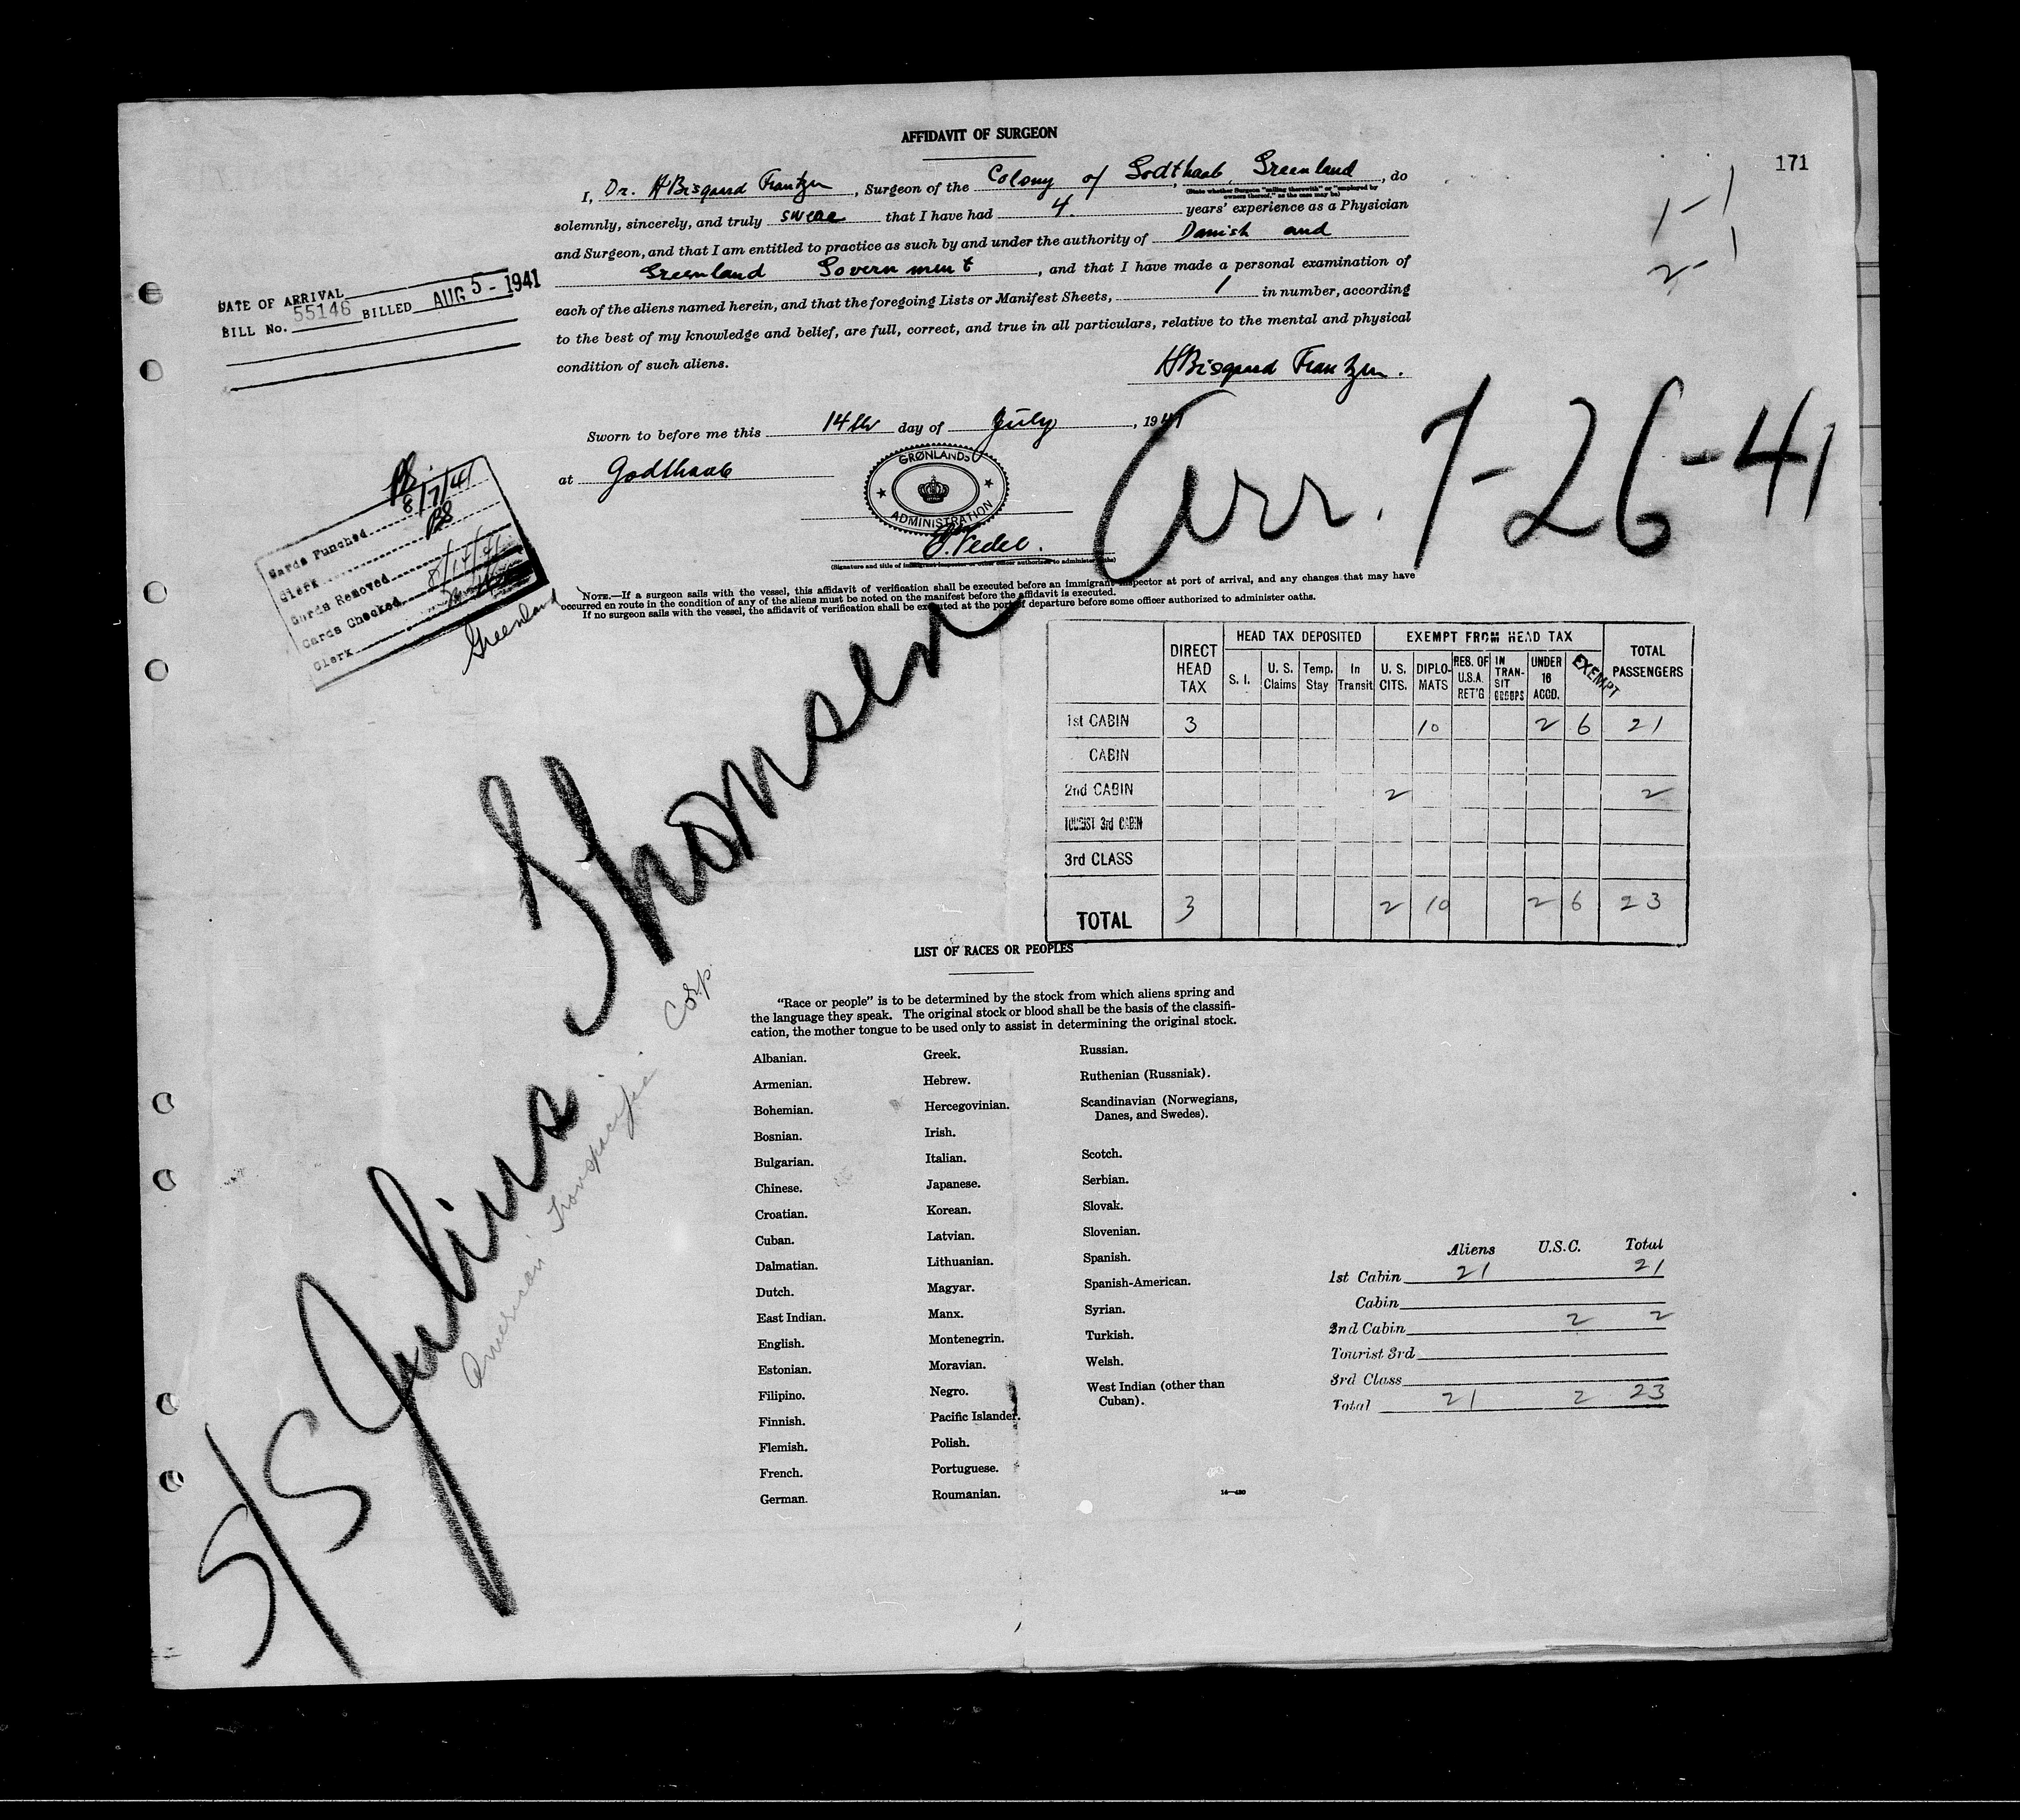 AFFIDAVIT OF SURGEON
171
I, Dr. HBisgaard Frantzen, Surgeon of the Colony of Godthaab, Greenland, do
(State whether Surgeon "sailing therewith" or "employed by owners thereof," as the case may be)
solemnly, sincerely, and truly swear that I have had 4. years' experience as a Physician
and Surgeon, and that I am entitled to practice as such by and under the authority of Danish and
Greenland Government, and that I have made a personal examination of
each of the aliens named herein, and that the foregoing Lists or Manifest Sheets, 1 in number, according
to the best of my knowledge and belief, are full, correct, and true in all particulars, relative to the mental and physical
condition of such aliens.
1-1
2-1
DATE OF ARRIVAL
BILL No. 55146 BILLED AUG 5 - 1941
HBisgaard Frantzen.
Sworn to before me this 14th day of July, 1941
at Godthaab
GRØNLANDS
ADMINISTRATION
Vedel.
(Signature and title of immigrant inspector or other officer authorized to administer oaths)
Arr. 7-26-41
Cards Punched 8/7/41
Clerk
Cards Removed
Cards Checked
Clerk
Greenland
NOTE.—If a surgeon sails with the vessel, this affidavit of verification shall be executed before an immigrant inspector at port of arrival, and any changes that may have
occurred en route in the condition of any of the aliens must be noted on the manifest before the affidavit is executed.
If no surgeon sails with the vessel, the affidavit of verification shall be executed at the port of departure before some officer authorized to administer oaths.
DIRECT HEAD TAX HEAD TAX DEPOSITED EXEMPT FROM HEAD TAX TOTAL PASSENGERS
S. I. U. S. Claims Temp. Stay In Transit U. S. CITS. DIPLO-MATS RES. OF U.S.A. RET'G IN TRAN-SIT GROUPS UNDER 16 ACCD. EXEMPT
1st CABIN 3 10 2 6 21
CABIN
2nd CABIN 2 2
TOURIST 3rd CABIN
3rd CLASS
TOTAL 3 2 10 2 6 23
S/S Julius Thomsen
American Transpacific Corp.
LIST OF RACES OR PEOPLES
"Race or people" is to be determined by the stock from which aliens spring and
the language they speak. The original stock or blood shall be the basis of the classifi-
cation, the mother tongue to be used only to assist in determining the original stock.
Albanian.
Armenian.
Bohemian.
Bosnian.
Bulgarian.
Chinese.
Croatian.
Cuban.
Dalmatian.
Dutch.
East Indian.
English.
Estonian.
Filipino.
Finnish.
Flemish.
French.
German.
Greek.
Hebrew.
Hercegovinian.
Irish.
Italian.
Japanese.
Korean.
Latvian.
Lithuanian.
Magyar.
Manx.
Montenegrin.
Moravian.
Negro.
Pacific Islander.
Polish.
Portuguese.
Roumanian.
Russian.
Ruthenian (Russniak).
Scandinavian (Norwegians,
Danes, and Swedes).
Scotch.
Serbian.
Slovak.
Slovenian.
Spanish.
Spanish-American.
Syrian.
Turkish.
Welsh.
West Indian (other than
Cuban).
Aliens U.S.C. Total
1st Cabin 21 21
Cabin
2nd Cabin 2 2
Tourist 3rd
3rd Class
Total 21 2 23